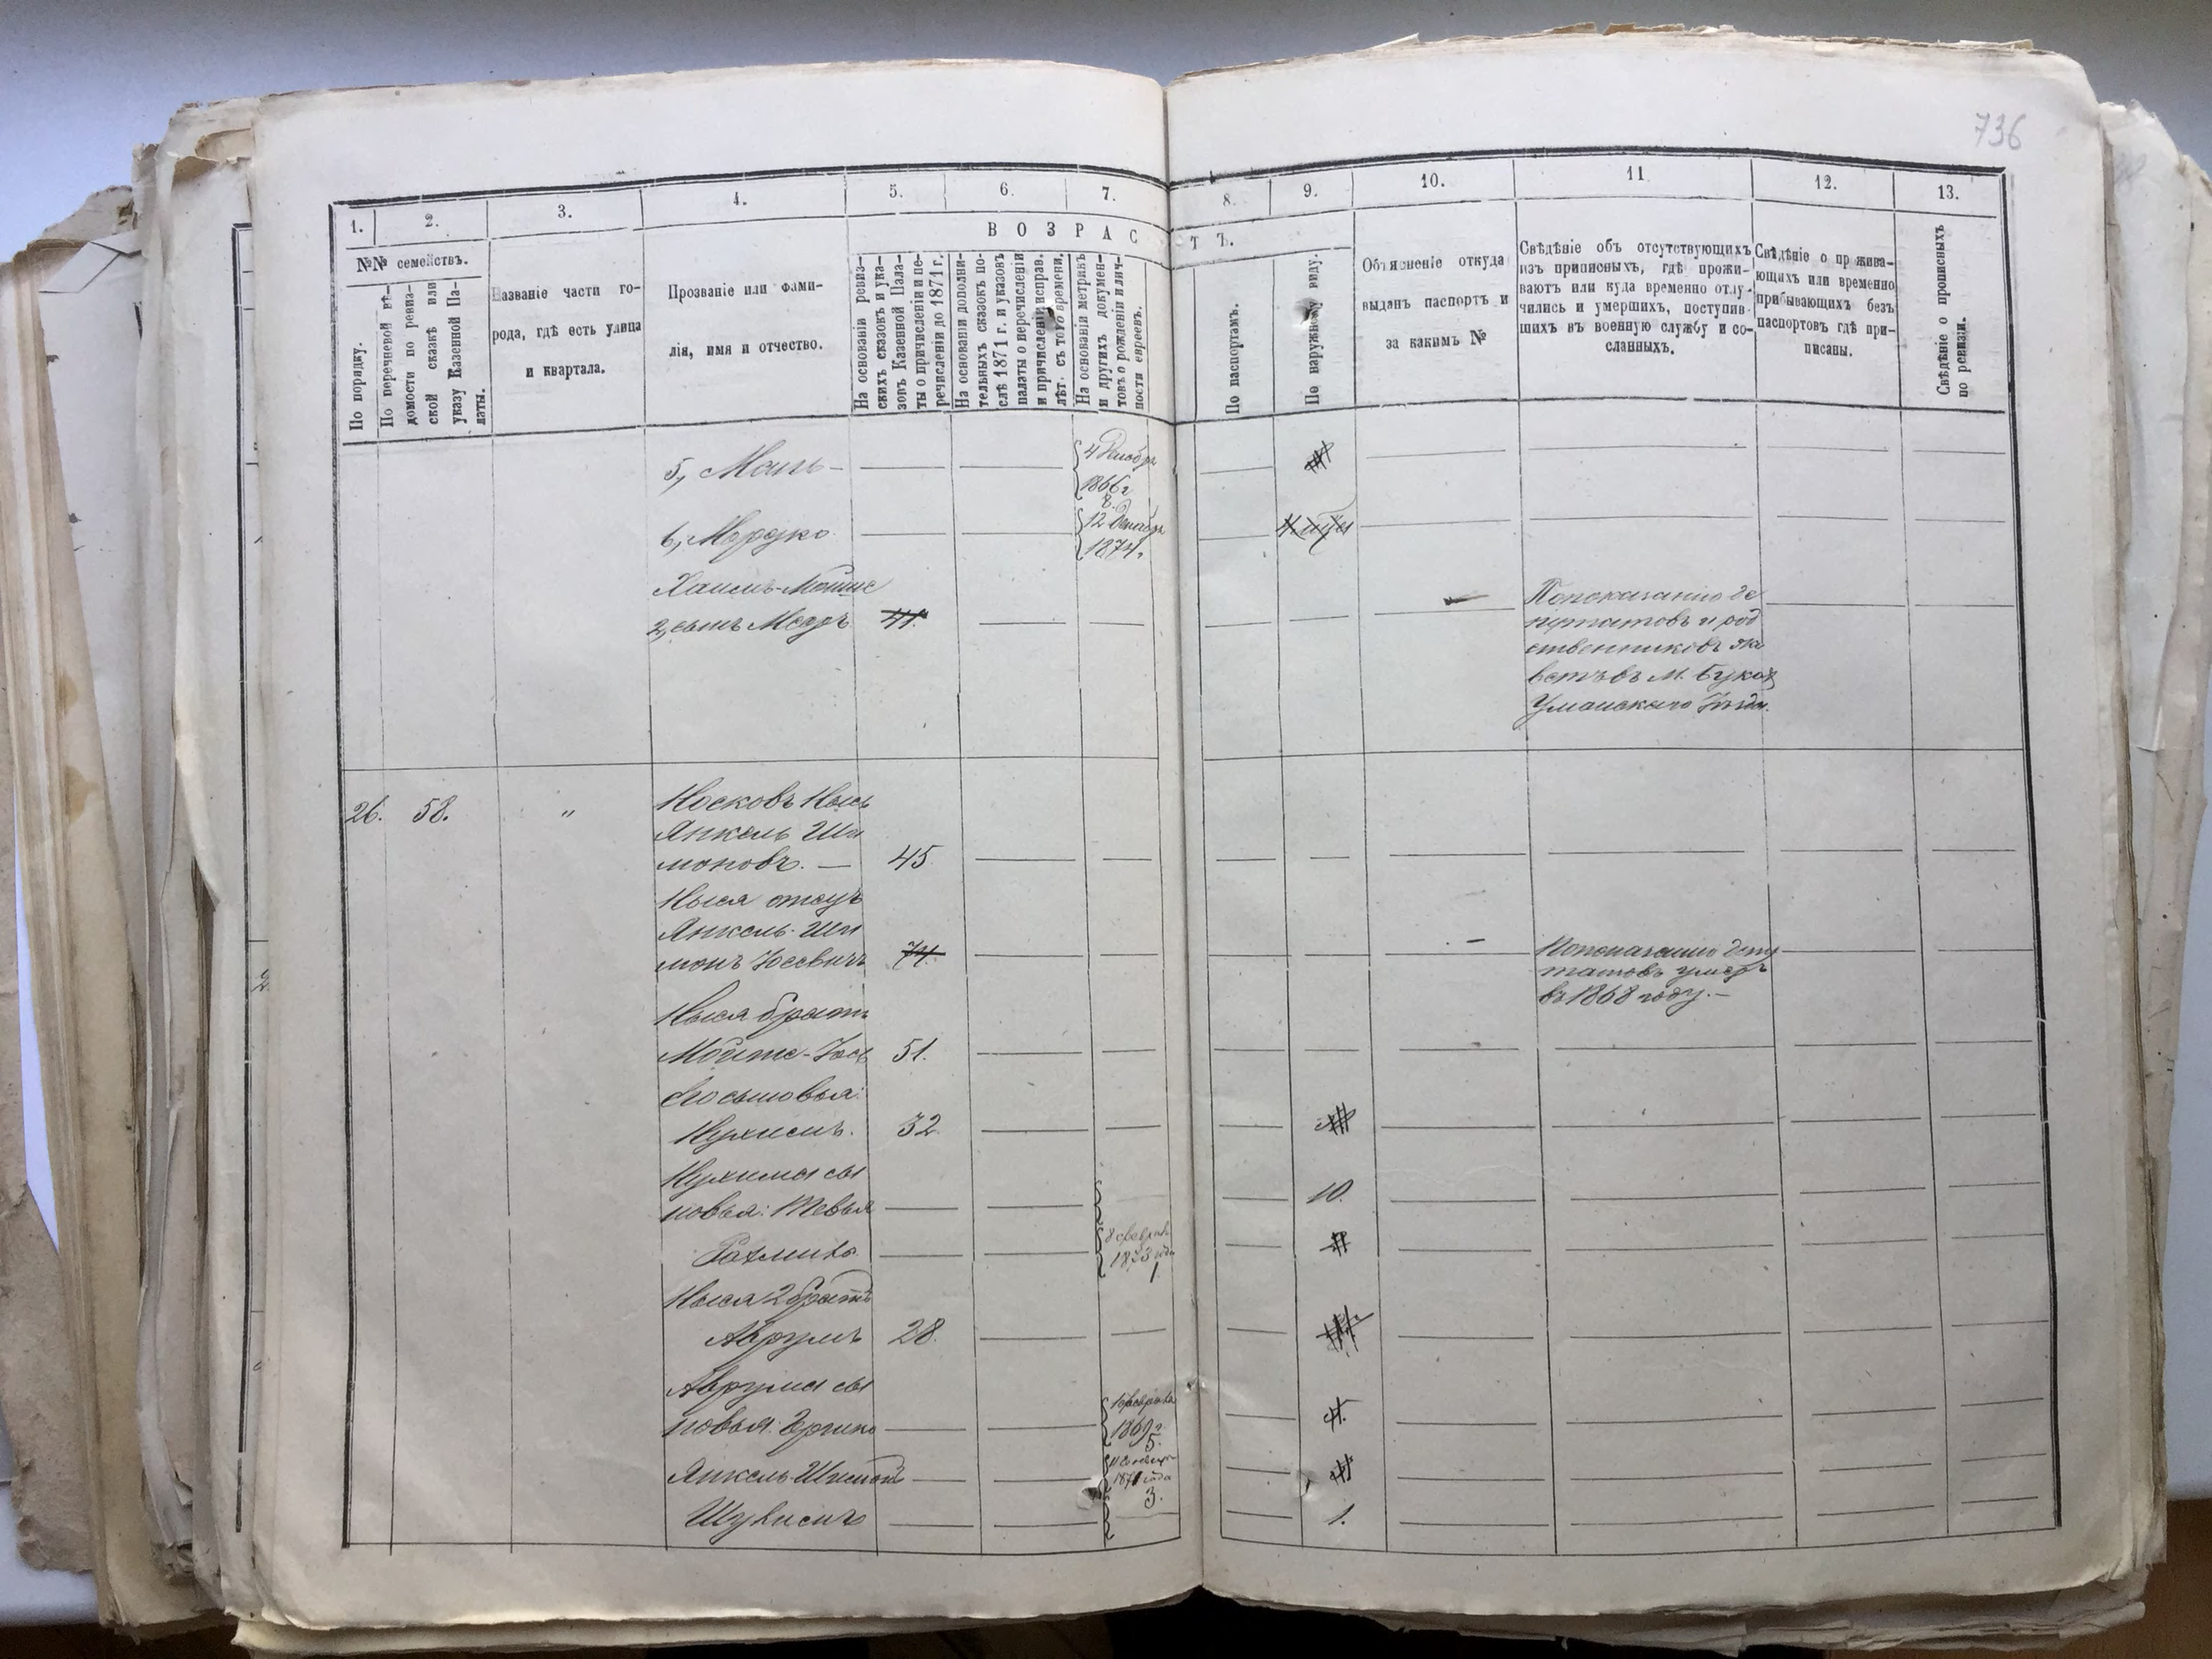 736
1.
2.
3.
4.
5.
6.
7.
8.
9.
10.
11
12.
13.
№№ семействъ.
По порядку.
По перечневой вѣ-
домости по ревиз-
ской сказкѣ или
указу Казенной Па-
латы.
Названіе части го-
рода, гдѣ есть улица
и квартала.
Прозваніе или фами-
лія, имя и отчество.
ВОЗРАС
ТЪ.
На основаніи ревиз-
скихъ сказокъ и ука-
зовъ Казенной Пала-
ты о причисленіи и пе-
речисленіи до 1871 г.
На основаніи дополни-
тельныхъ сказокъ по-
слѣ 1871 г. и указовъ
палаты о перечисленіи
и причисленіи исправ.
лѣт. съ того времени.
На основаніи метрикъ
и другихъ докумен-
товъ о рожденіи и лич-
ности евреевъ.
По паспортамъ.
По наружному виду.
Объясненіе откуда
выданъ паспортъ и
за какимъ №
Свѣдѣніе объ отсутствующихъ
изъ приписныхъ, гдѣ прожи-
ваютъ или куда временно отлу-
чились и умершихъ, поступив-
шихъ въ военную службу и со-
сланныхъ.
Свѣдѣніе о прожива-
ющихъ или временно
прибывающихъ безъ
паспортовъ гдѣ при-
писаны.
Свѣдѣніе о прописныхъ
по ревизіи.
5,
4 Декабр
1866 г
8.
6, Мордко
12 Декабр
1874.
Хаимъ-Мойше
2, сынъ 41.
По показанію де
путатовъ и род
ственниковъ жи
ветъ въ М. Буках
Уманскаго Уѣзда.
26. 58. "
Носковъ Нысь
Янкель Ши
моновъ. — 45
Ныся отецъ
Янкель-Ши
монъ Іосевичъ 74.
По показанію депу
татовъ умеръ
въ 1868 году. —
Ныся братъ
Мойше-Іось 51.
Его сыновья:
Нухимъ. 32
Нухима сы
новья: Тевья 10.
Рахмиль
8 февраля
1873 года
1
Ныся 2 братъ
Аврумъ 28.
Аврума сы
новья:
февраля
1869 г.
5.
Янкель-Шимон
1871 года
3.
1.